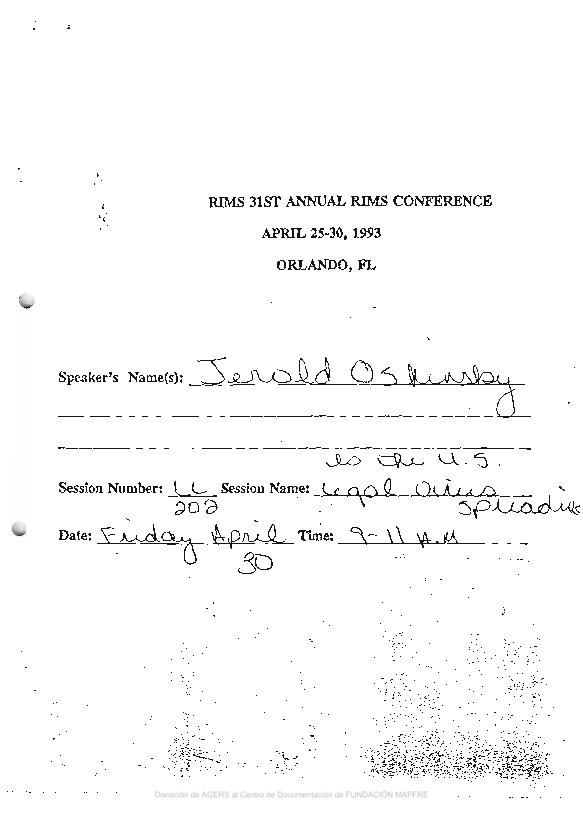 RIMS 31ST ANNUAL RIMS CONFERENCE
APRIL 25-30, 1993
ORLANDO, FL
Speaker's Name(s): Jerold Oshinsky
to the U.S.
Session Number: LL Session Name: Legal
202 spreading
Date: Friday April Time: 9-11 A.M
30
Donación de AGERS al Centro de Documentación de FUNDACIÓN MAPFRE